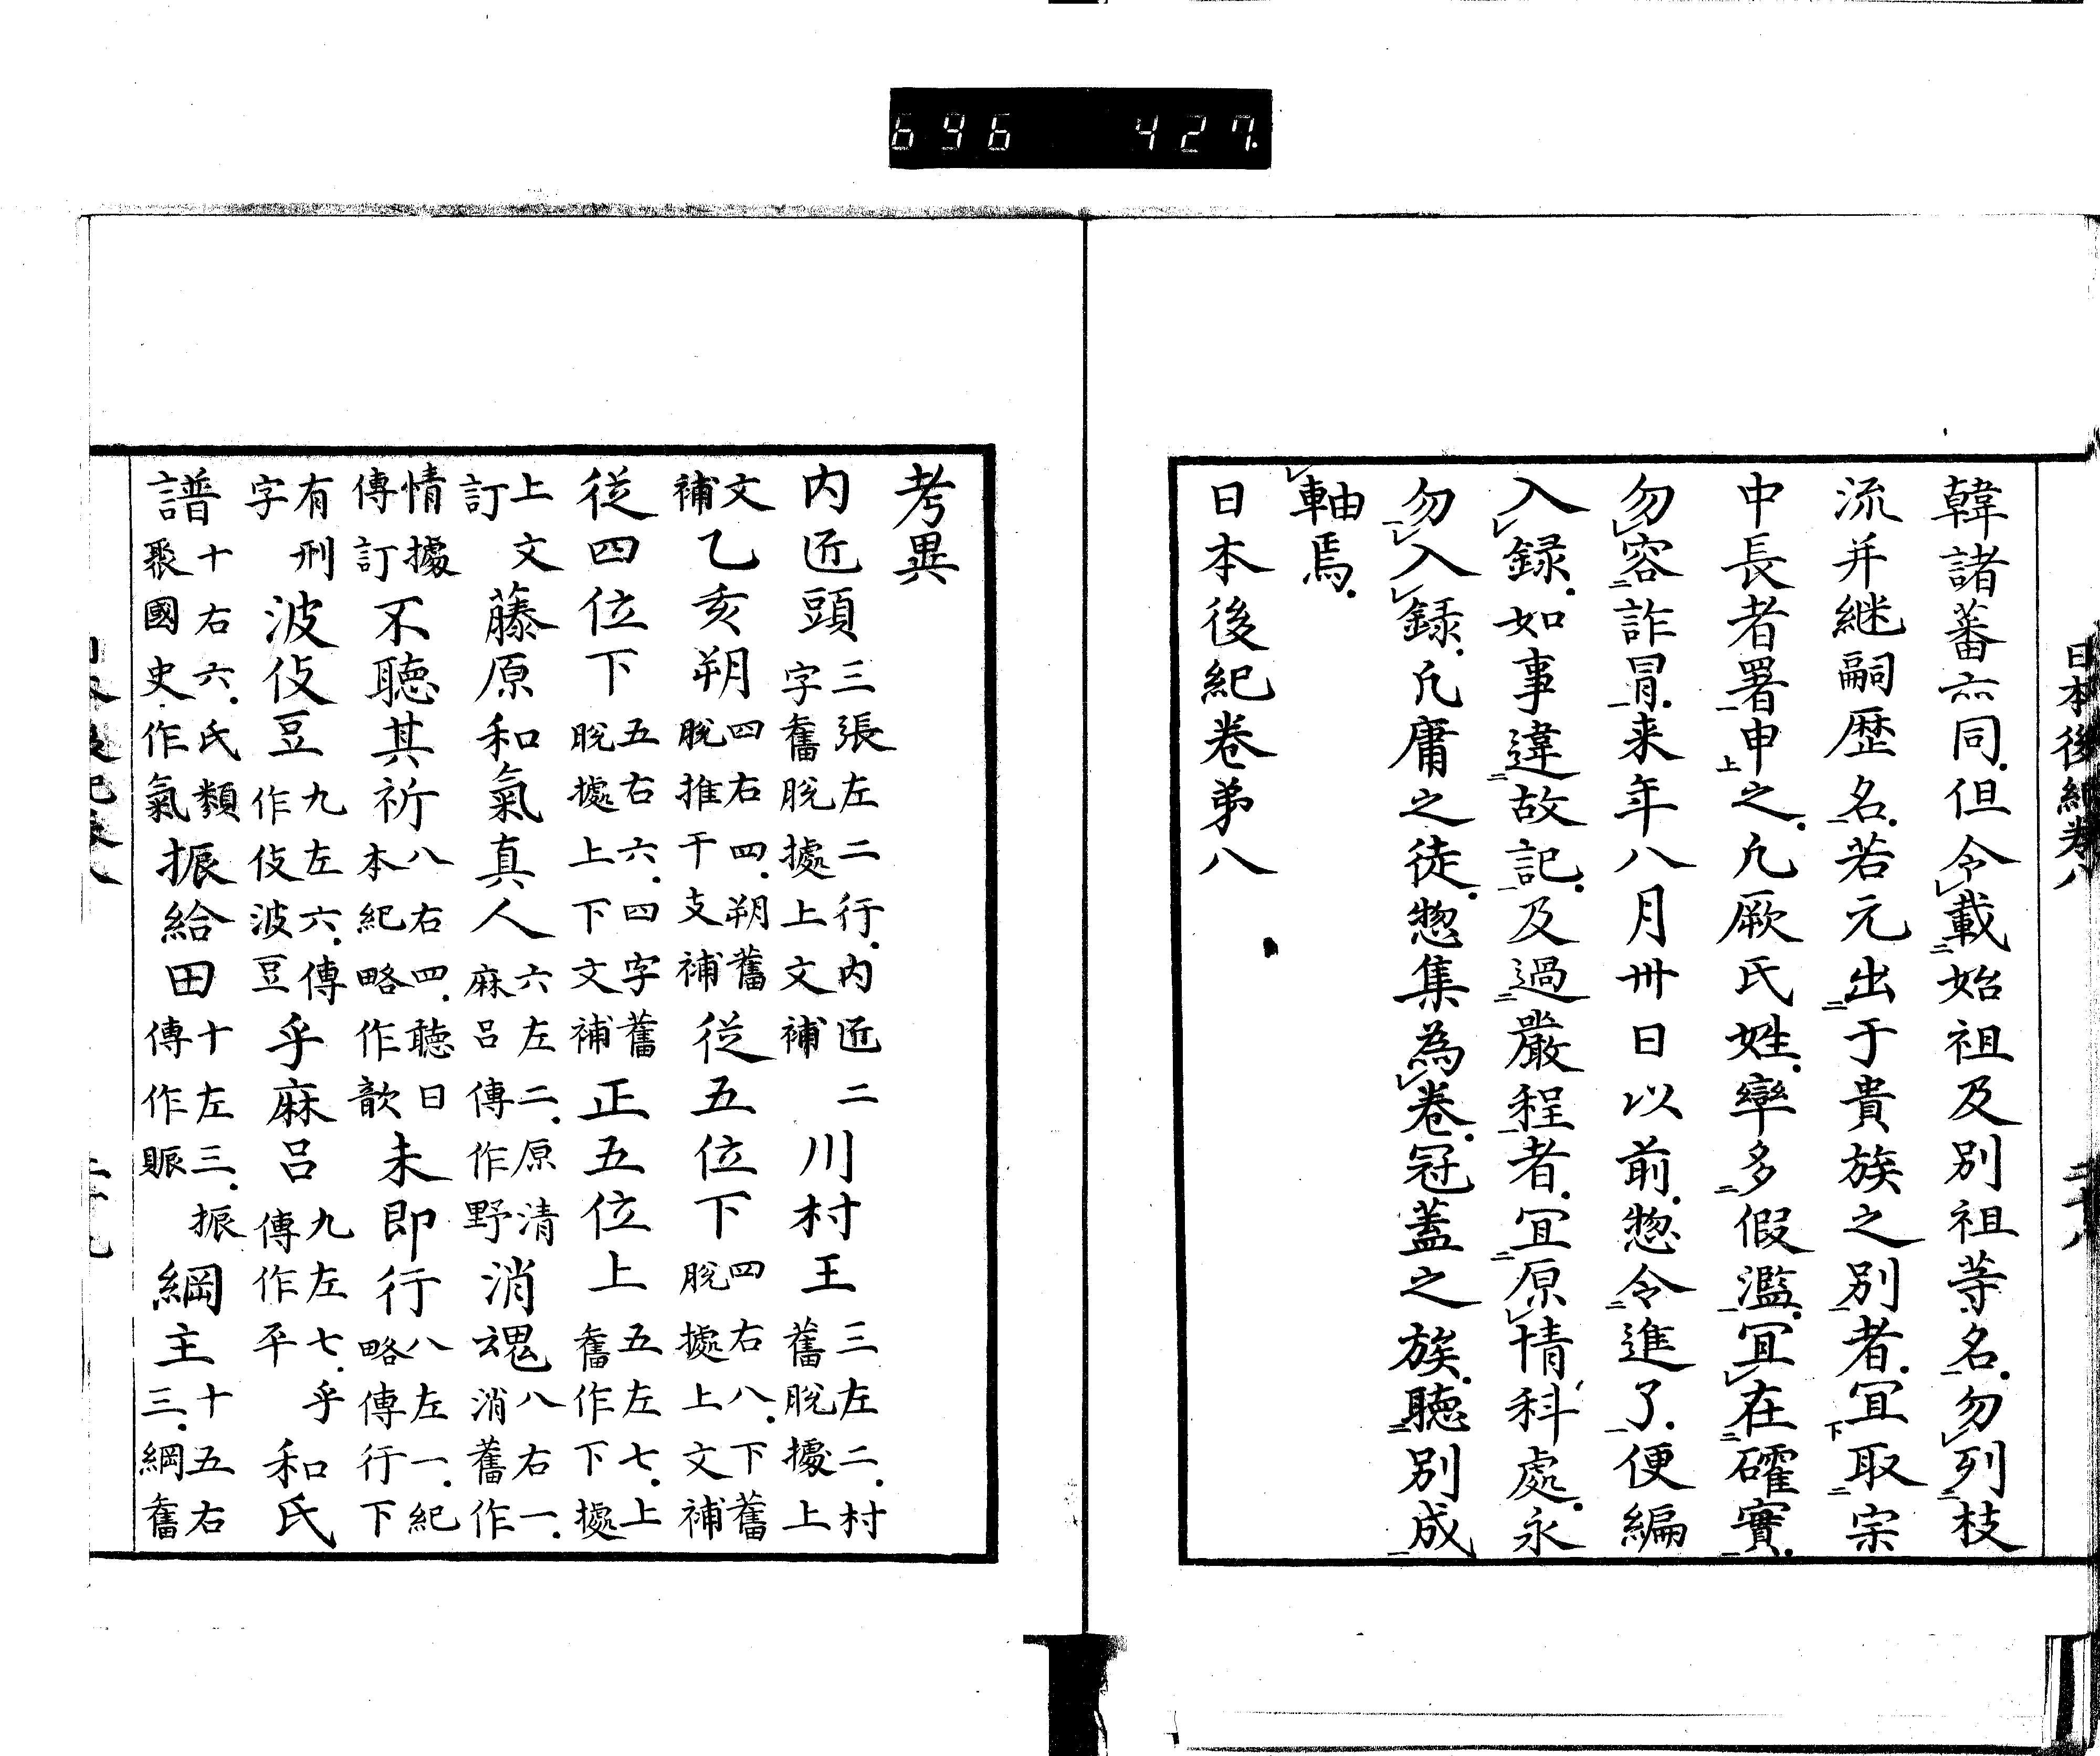 696 427
日本後紀卷八
韓諸蕃亦同.但令載始祖及別祖等名.勿列枝
流并継嗣歴名.若元出于貴族之別者.宜取宗
中長者署申之.凢厥氏姓.率多假濫.宜在確實.
勿容詐冒.来年八月卅日以前.惣令進了.便編
入録.如事違故記.及過嚴程者.宜原情科處.永
勿入録.凢庸之徒.惣集為卷.冠蓋之族.聽別成
軸焉.
日本後紀卷第八
考異
内匠頭三張左二行.内匠二字舊脱據上文補 川村王三左二.村舊脱據上
文補乙亥朔四右四.朔舊脱推干支補從五位下四右八.下舊脱據上文補
從四位下五右六.四字舊脱據上下文補正五位上五左七.上舊作下據
上文訂藤原和氣真人六左二.原清麻呂傳作野消魂八右一.消舊作
情據傳訂不聽其祈八右四.聽日本紀略作歆未即行八左一.紀略傳行下
有刑字波伎豆九左六.傳作伎波豆乎麻呂九左七.乎傳作平和氏
譜十右六.氏類聚國史作氣振給田十左三.振傳作賑綱主十五右三.綱舊